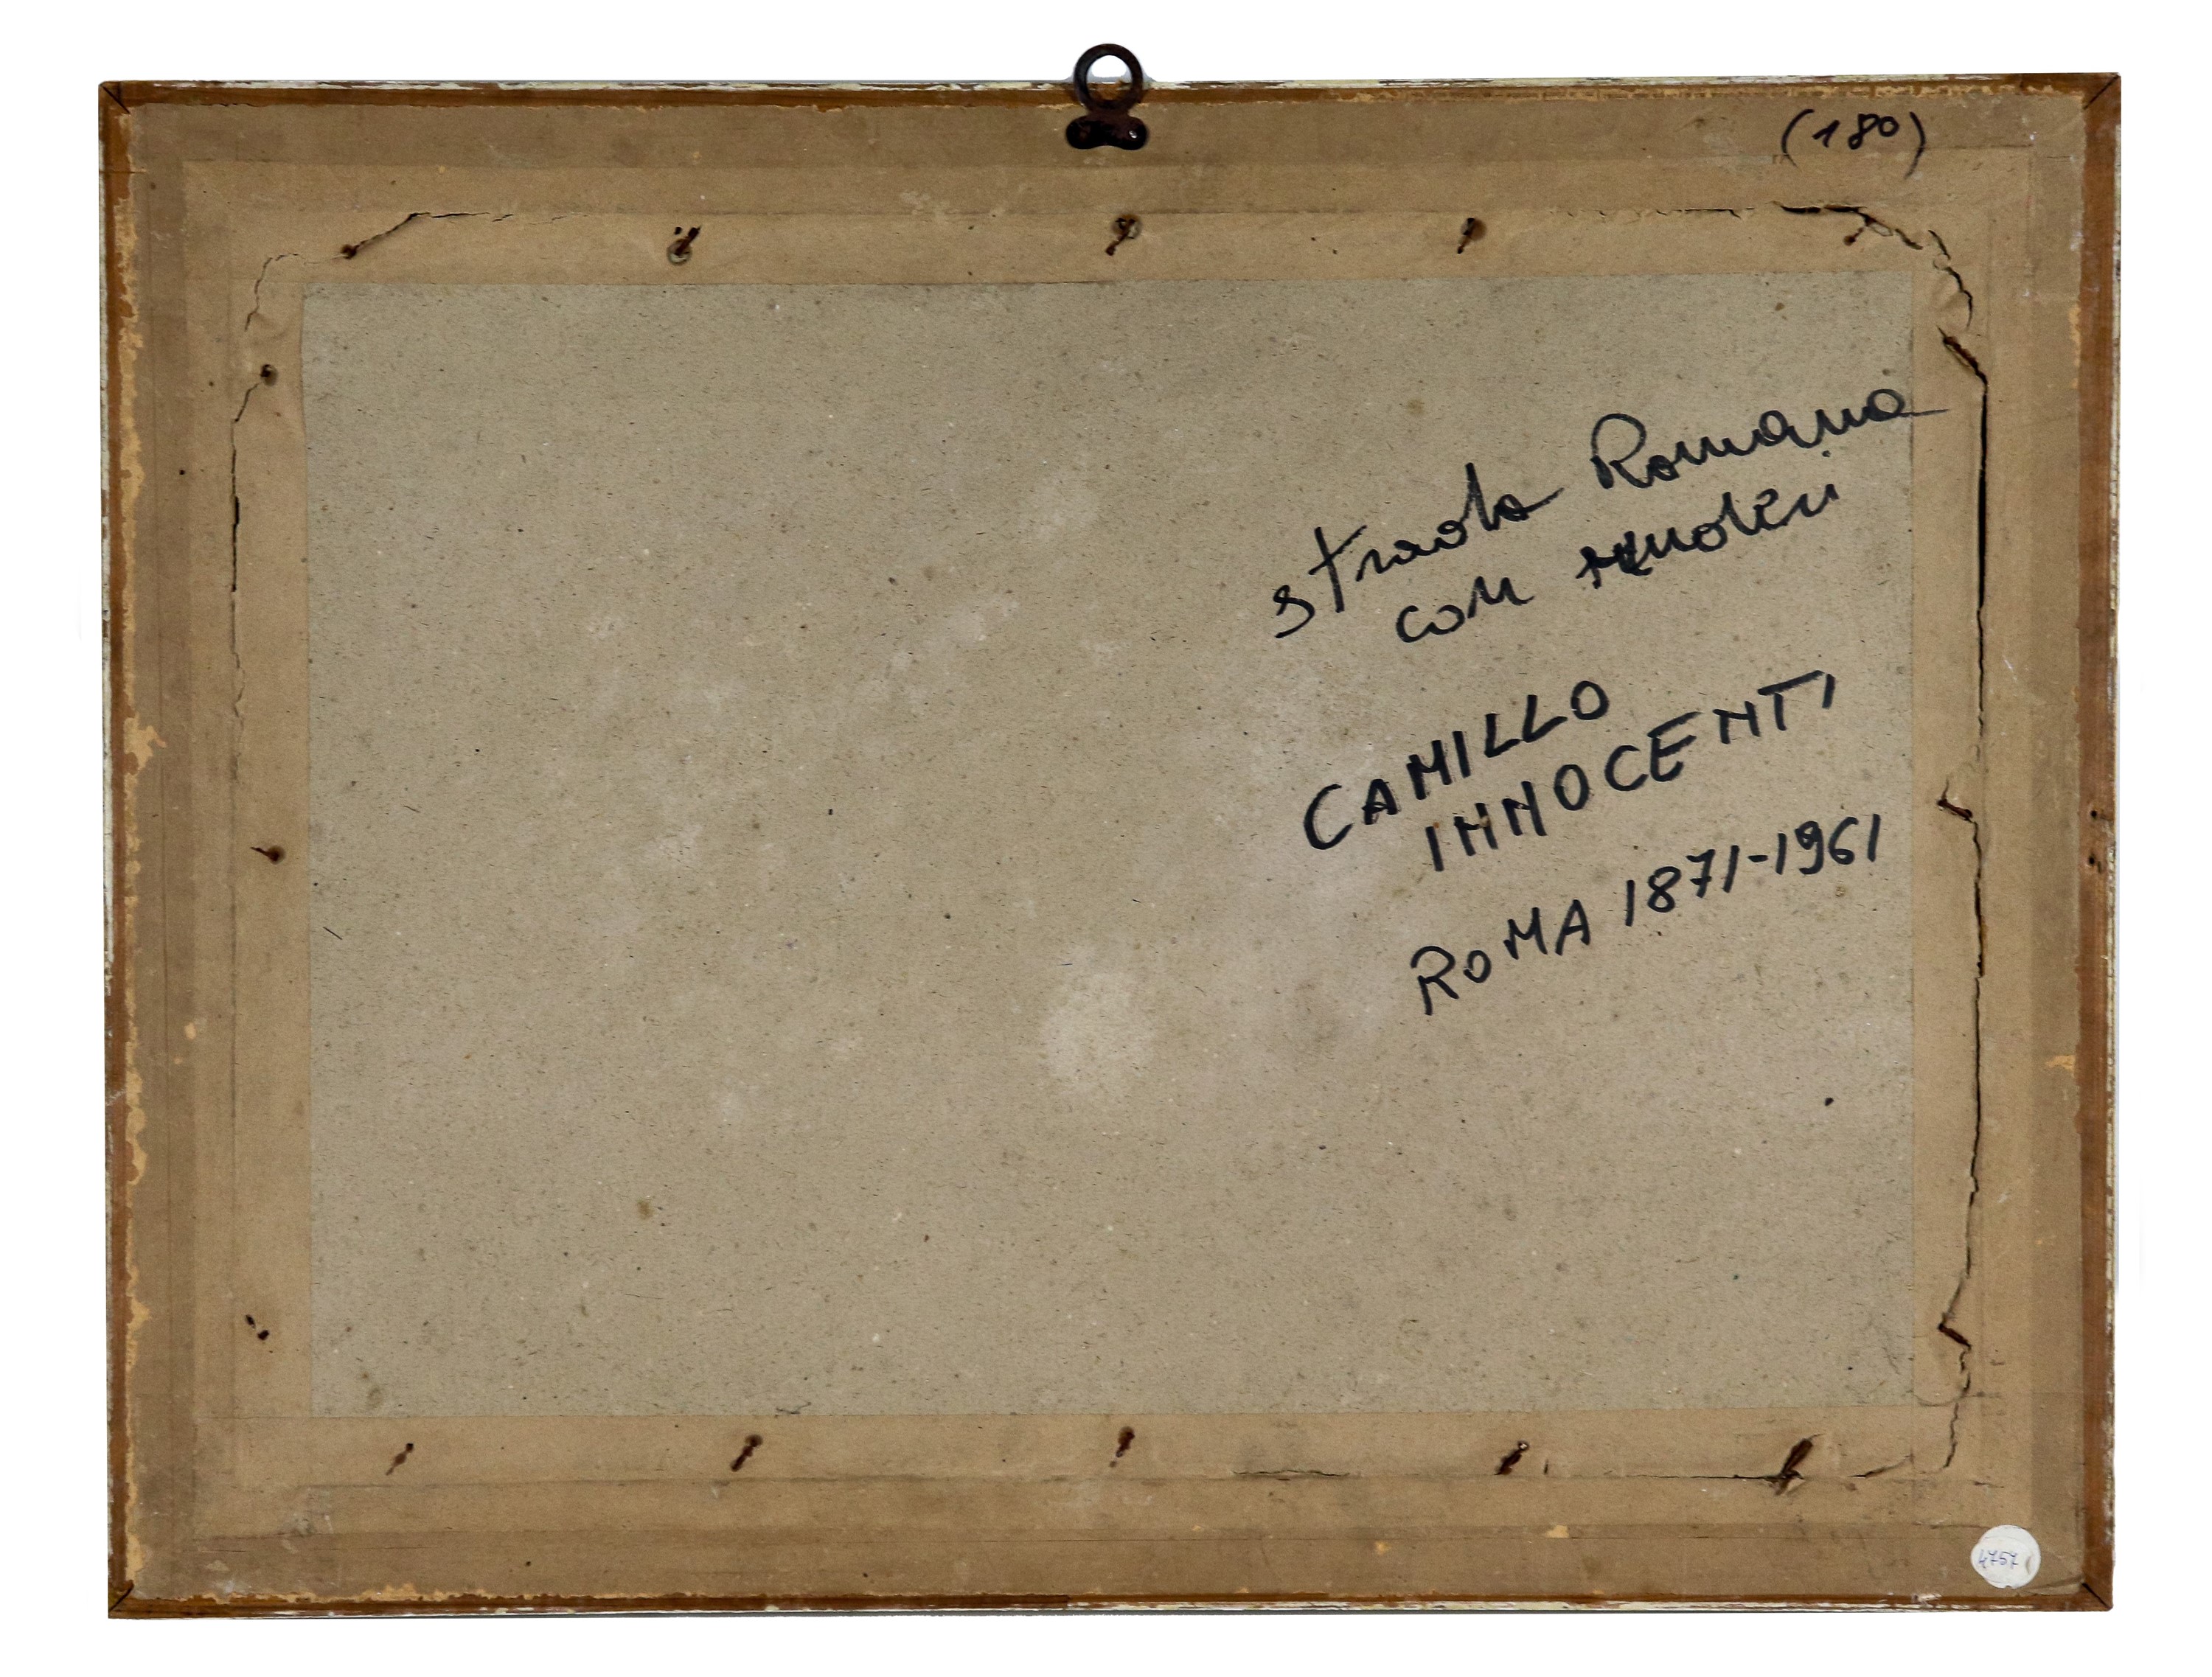 (180)
strada Romana
con ruderi
CAMILLO
INNOCENTI
ROMA 1871-1961
4757